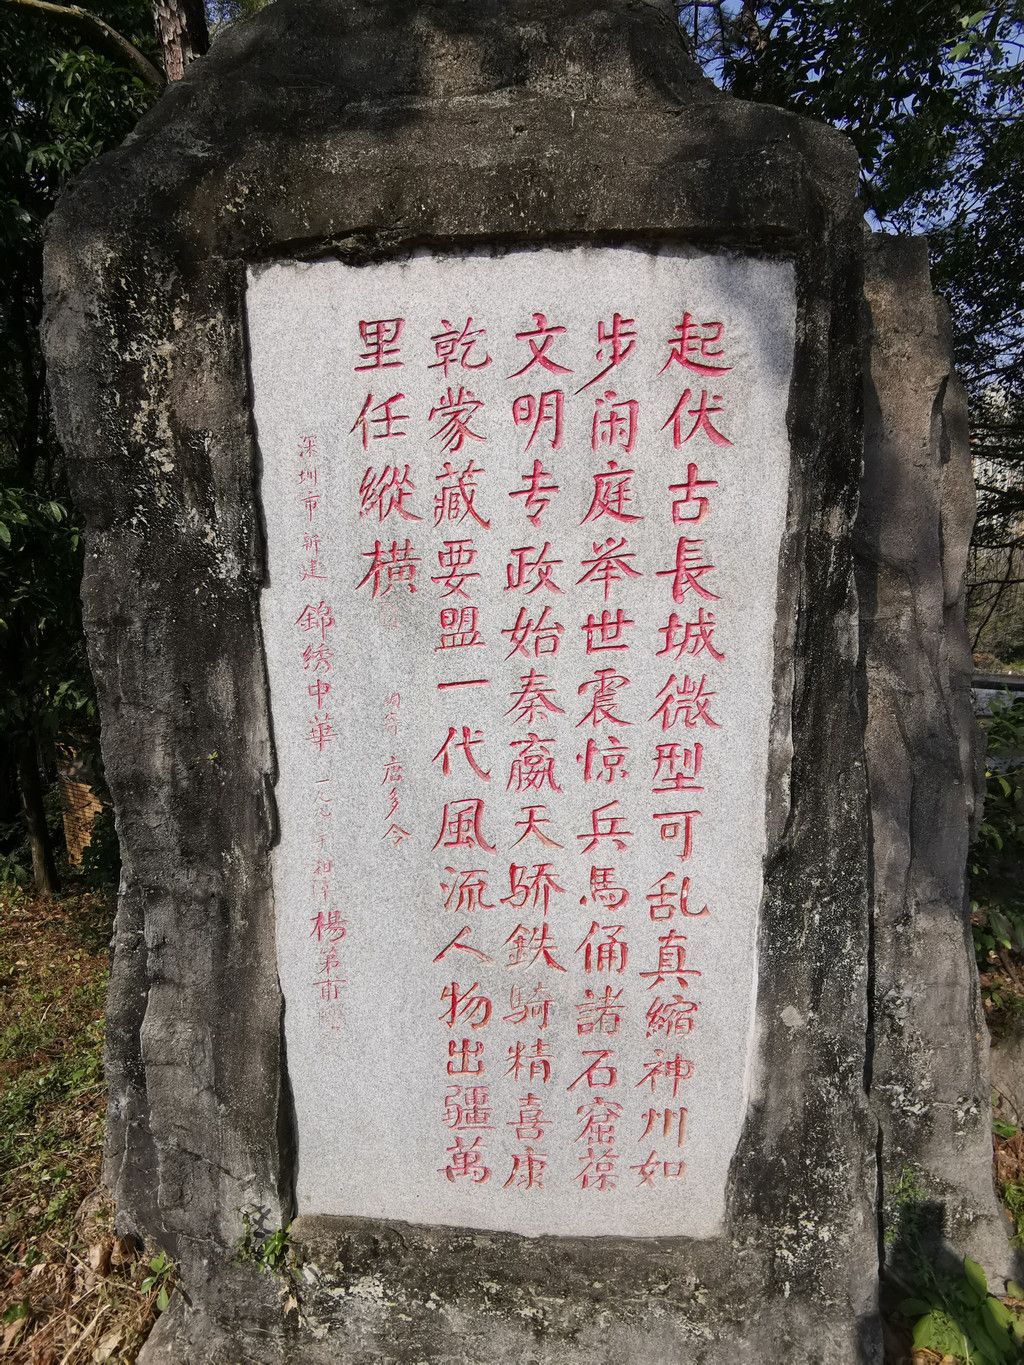 起伏古長城微型可乱真縮神州如
步闲庭举世震惊兵馬俑諸石窟葆
文明专政始秦嬴天骄鉄騎精喜康
乾蒙藏要盟一代風流人物出疆萬
里任縱横
唐多令
深圳市新建錦绣中華一九九
楊第甫